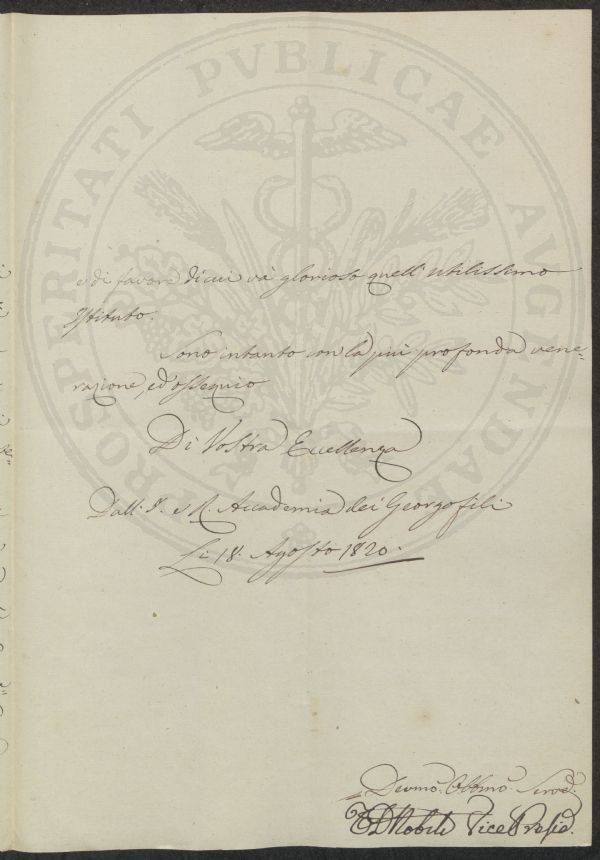 PROSPERITATI PVBLICAE AVGENDAE
e di favore di cui va glorioso quell' utilissimo
Istituto.
Sono intanto con la più profonda vene=
razione, ed ossequio
Di Vostra Eccellenza
Dall' I. e R. Accademia dei Georgofili
Li 18. Agosto 1820.
Devmo. Obbmo. Servo
Nobili Vice Presid.